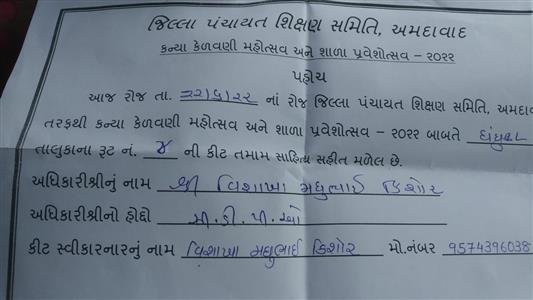 જિલ્લા પંચાયત શિક્ષણ સમિતિ, અમદાવાદ
કન્યા કેળવણી મહોત્સવ અને શાળા પ્રવેશોત્સવ - ૨૦૨૨
પહોચ
આજ રોજ તા. ૨૨/૬/૨૨ નાં રોજ જિલ્લા પંચાયત શિક્ષણ સમિતિ, અમદાવા
તરફથી કન્યા કેળવણી મહોત્સવ અને શાળા પ્રવેશોત્સવ - ૨૦૨૨ બાબતે ધંધુકા
તાલુકાના રૂટ નં. ૪ ની કીટ તમામ સાહિત્ય સહીત મળેલ છે.
અધિકારીશ્રીનું નામ શ્રી વિશાખા મધુભાઈ કિશોર
અધિકારીશ્રીનો હોદ્દો સી.ડી.પી.ઓ
કીટ સ્વીકારનારનું નામ વિશાખા મધુભાઈ કિશોર મો.નંબર 9574396038